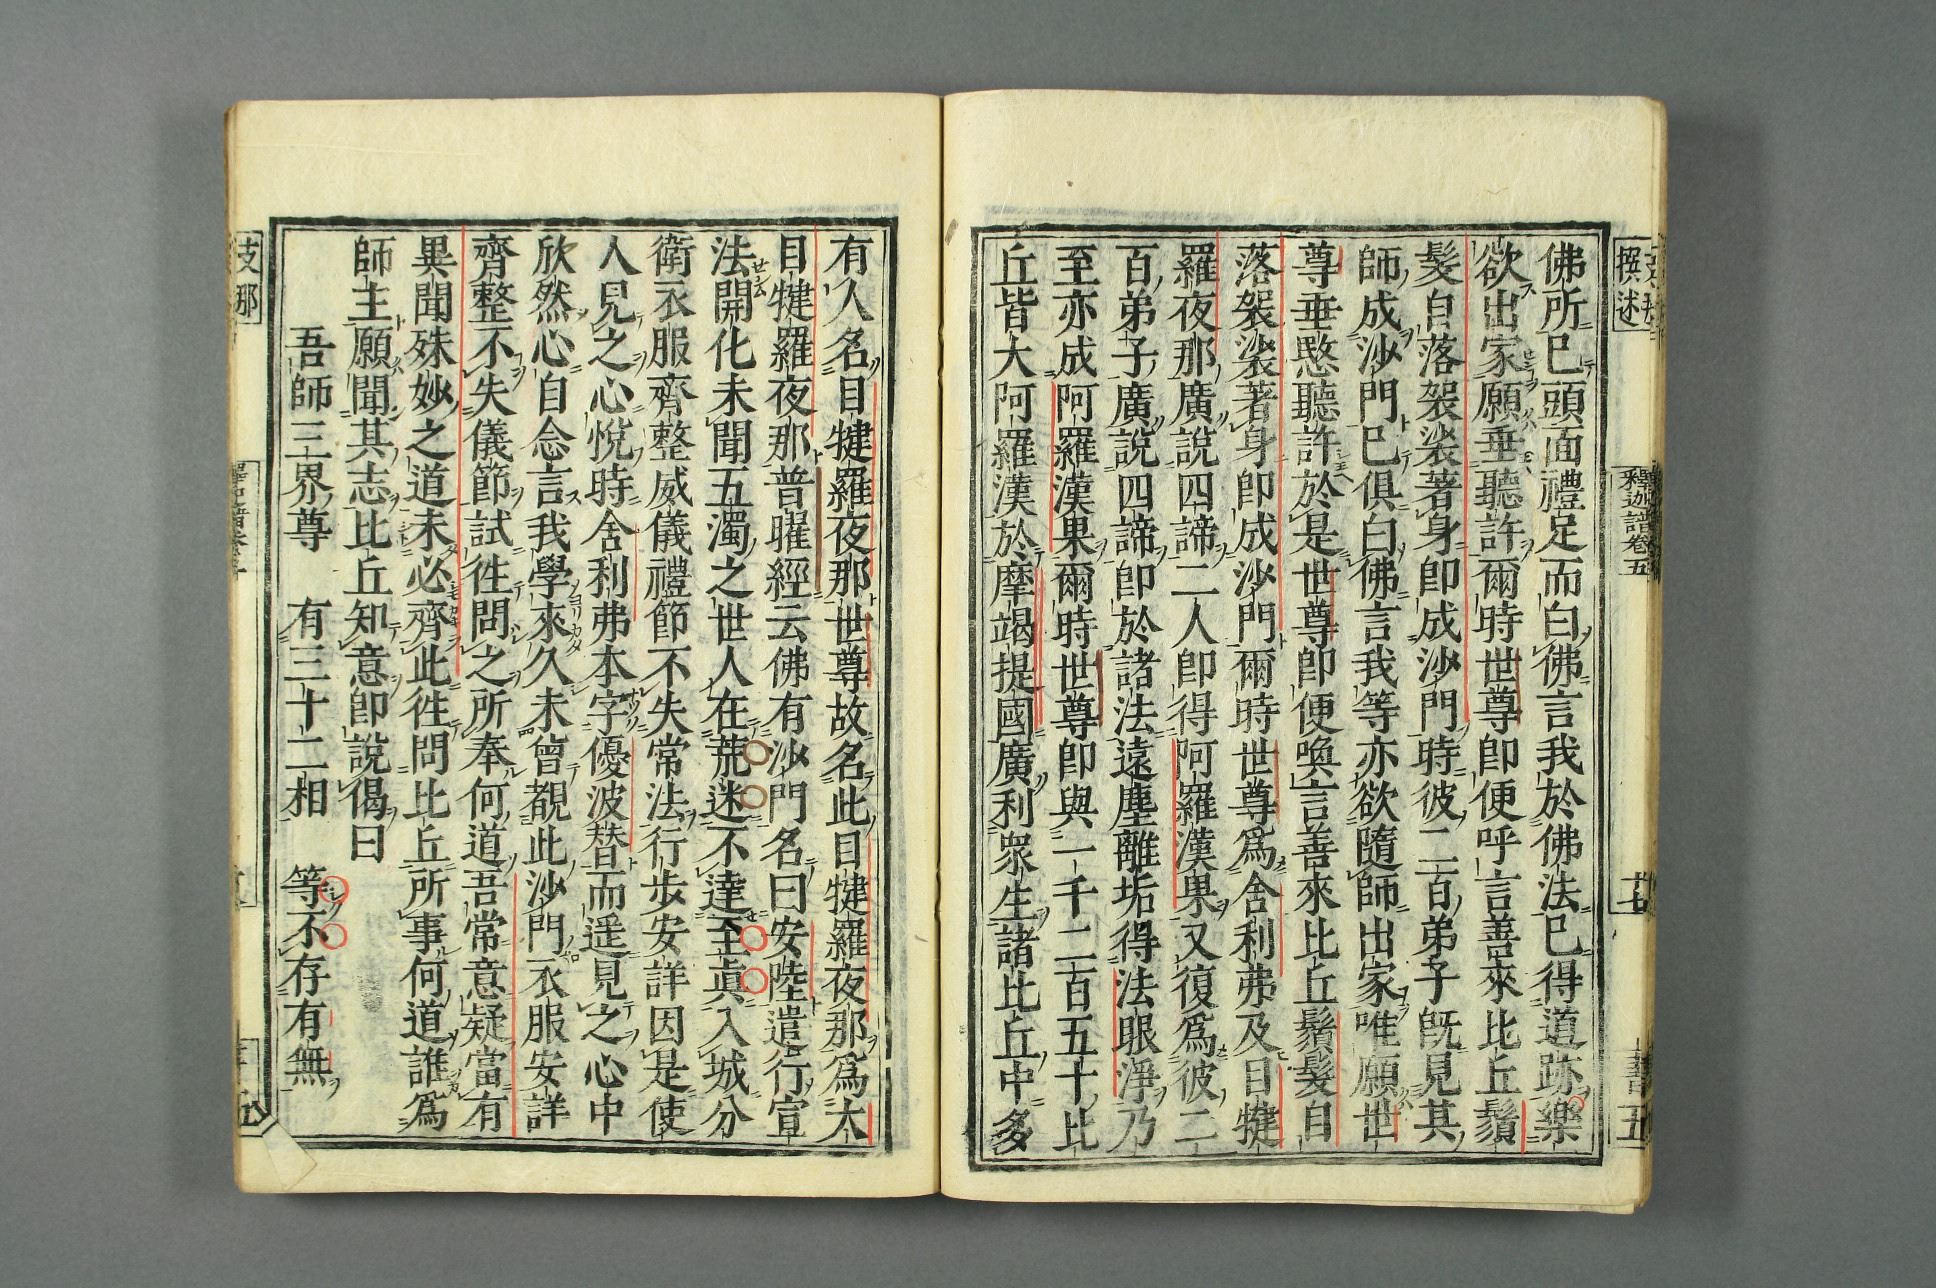 撰述
釋迦譜卷五
十七
五
佛所已頭面禮足而白佛言我於佛法已得道跡樂
欲出家願垂聽許爾時世尊卽便呼言善來比丘鬚
髮自落袈裟著身卽成沙門時彼二百弟子旣見其
師成沙門已俱白佛言我等亦欲隨師出家唯願世
尊垂愍聽許於是世尊卽便喚言善來比丘鬚髮自
落袈裟著身卽成沙門爾時世尊爲舍利弗及目犍
羅夜那廣說四諦二人卽得阿羅漢果又復爲彼二
百弟子廣說四諦卽於諸法遠塵離垢得法眼淨乃
至亦成阿羅漢果爾時世尊卽與一千二百五十比
丘皆大阿羅漢於摩竭提國廣利衆生諸比丘中多
有人名目犍羅夜那世尊故名此目犍羅夜那爲大
目犍羅夜那普曜經云佛有沙門名曰安陸遣行宣
法開化未聞五濁之世人在荒迷不達至眞入城分
衛衣服齊整威儀禮節不失常法行步安詳因是使
人見之心悅時舍利弗本字優波替而遥見之心中
欣然心自念言我學來久未曾覩此沙門衣服安詳
齊整不失儀節試徃問之所奉何道吾常意疑當有
異聞殊妙之道未必齊此徃問比丘所事何道誰爲
師主願聞其志比丘知意卽說偈曰
吾師三界尊　有三十二相　等不存有無
支那